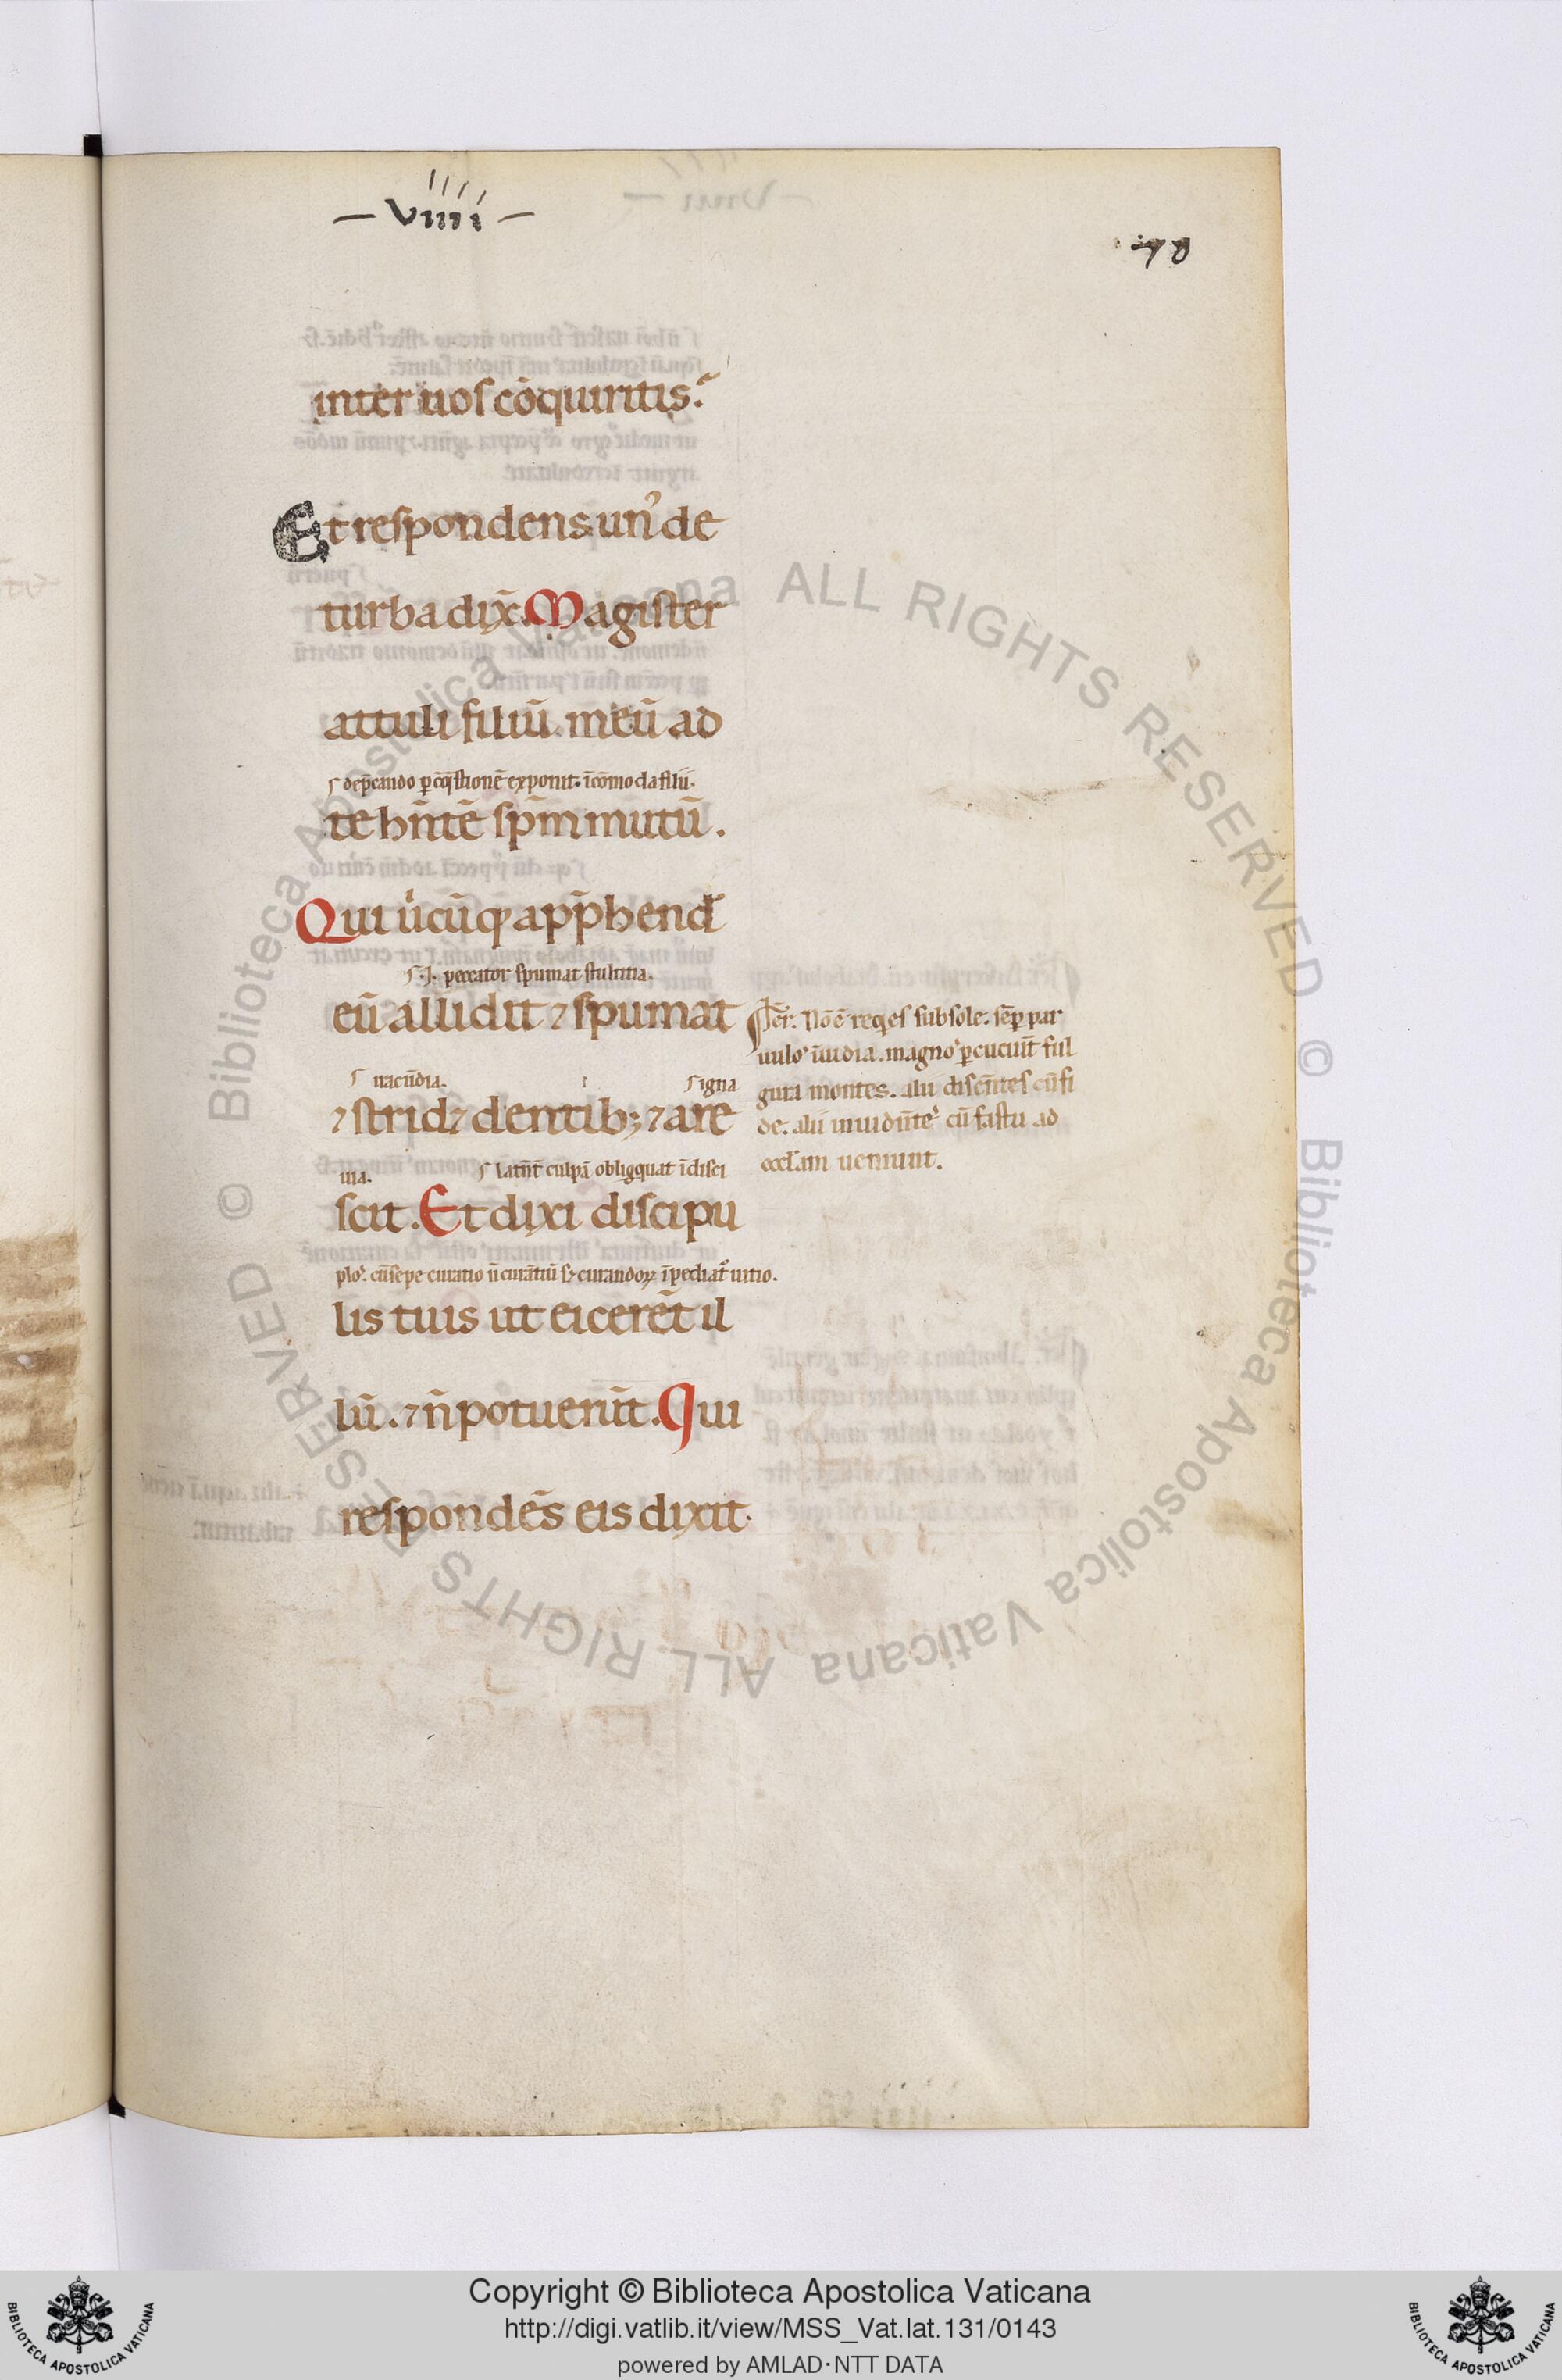 — viiii —
78
inter uos cōquiritis?
Et respondens un᾽ de
turba dix̄. Magister
attuli filiū meū ad
dep̄cando ꝑ cōq̄stionē exponit. īcōmoda filii.
te hn̄tē sp̄m mutū.
Qui ūcūq; app̄hend̄
.i. peccator spumat stultitia.
eū allidit ⁊ spumat
iracūdia. igna
⁊ strid⁊ dentib; ⁊ are
uia. latn̄t culpā obliqquat ī disci
scit. Et dixi discipu
plo᾽. cū sepe curatio n̄ curātiū s; curandoꝝ īpediat᾽ uitio.
lis tuis ut eicerēt il
lū. ⁊ n̄ potuerūt. Qui
respondēs eis dixit.
Ier. Nō ē reqͥes sub sole. sēꝑ par
uulo᾽ īuidia. magno᾽ ꝑcuciūt ful
gura montes. alii discētes cū fi
de. alii inuidn̄te᾽ cū fastu ad
eccl̄am ueniunt.
Biblioteca Apostolica Vaticana ALL RIGHTS RESERVED ©
Biblioteca Apostolica Vaticana ALL RIGHTS RESERVED ©
Copyright © Biblioteca Apostolica Vaticana
http://digi.vatlib.it/view/MSS_Vat.lat.131/0143
powered by AMLAD·NTT DATA
BIBLIOTECA APOSTOLICA VATICANA
BIBLIOTECA APOSTOLICA VATICANA